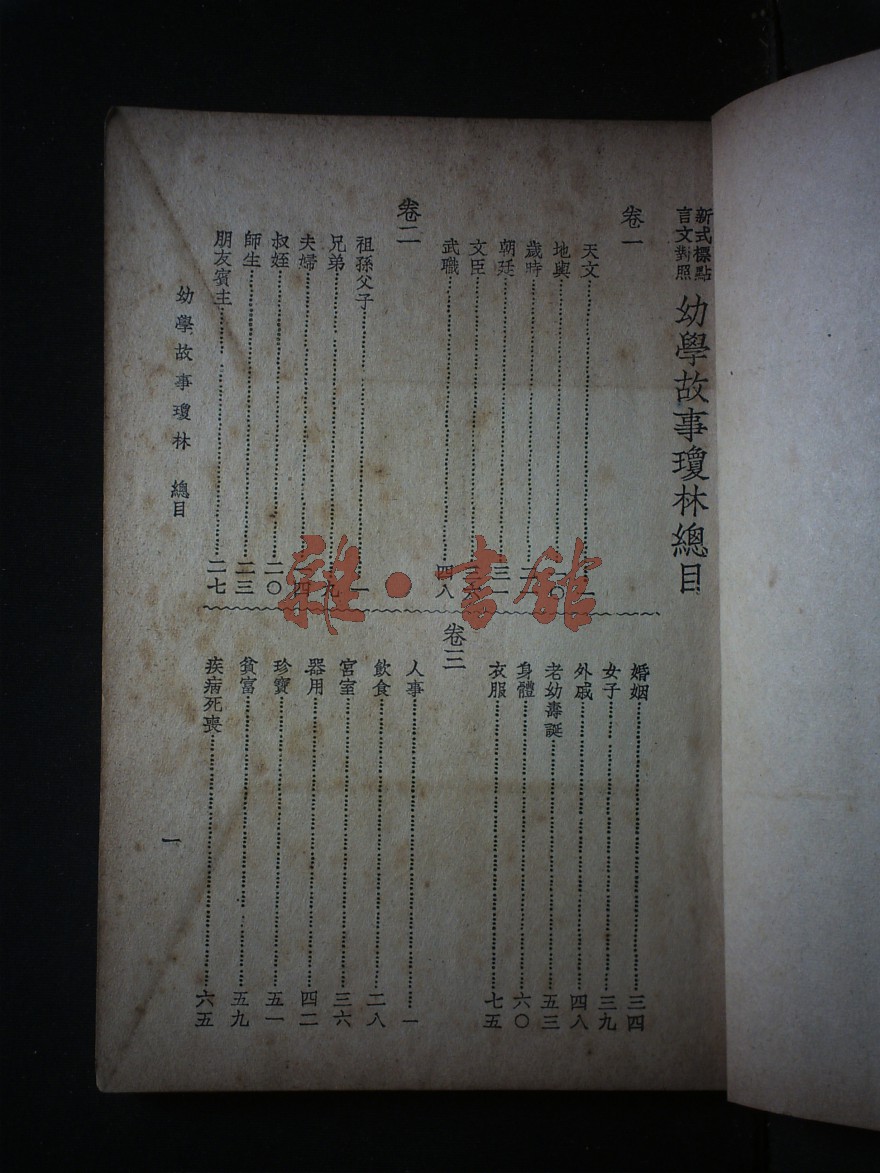 新式標點
言文對照
幼學故事瓊林總目
卷一
天文 一
地輿 一〇
歲時
朝廷 三一
文臣
武職 四八
卷二
祖孫父子 一
兄弟 九
夫婦 一四
叔姪 二〇
師生 二三
朋友賓主 二七
婚姻 三四
女子 三九
外戚 四八
老幼壽誕 五三
身體 六〇
衣服 七五
卷三
人事 一
飲食 二八
宮室 三六
器用 四二
珍寶 五一
貧富 五九
疾病死喪 六五
幼學故事瓊林 總目
一
雜·書館